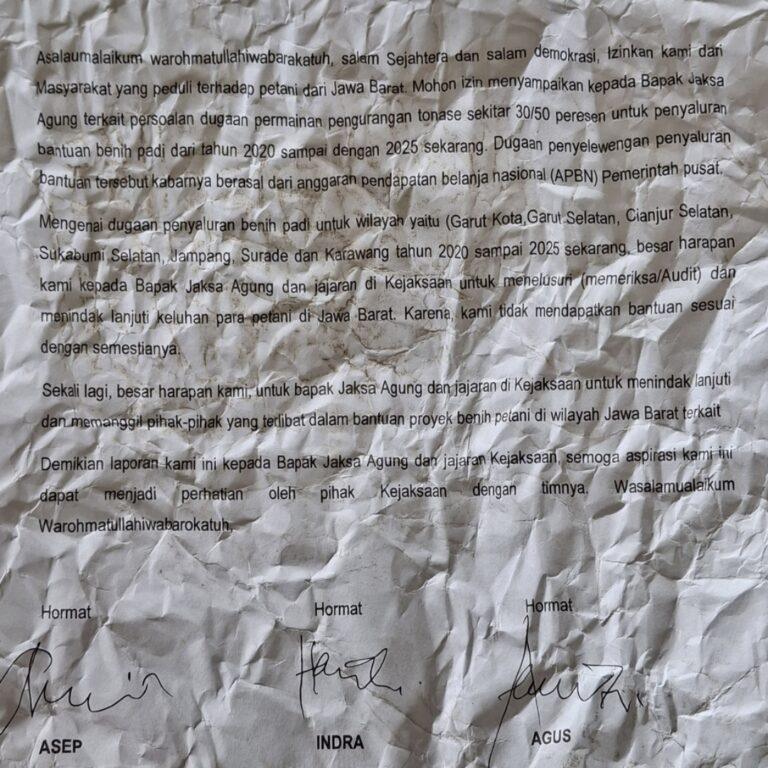 Asalaumalaikum warohmatullahiwabarakatuh, salam Sejahtera dan salam demokrasi, Izinkan kami dari
Masyarakat yang peduli terhadap petani dari Jawa Barat. Mohon izin menyampaikan kepada Bapak Jaksa
Agung terkait persoalan dugaan permainan pengurangan tonase sekitar 30/50 peresen untuk penyaluran
bantuan benih padi dari tahun 2020 sampai dengan 2025 sekarang. Dugaan penyelewengan penyaluran
bantuan tersebut kabarnya berasal dari anggaran pendapatan belanja nasional (APBN) Pemerintah pusat.
Mengenai dugaan penyaluran benih padi untuk wilayah yaitu (Garut Kota,Garut Selatan, Cianjur Selatan,
Sukabumi Selatan, Jampang, Surade dan Karawang tahun 2020 sampai 2025 sekarang, besar harapan
kami kepada Bapak Jaksa Agung dan jajaran di Kejaksaan untuk menelusuri (memeriksa/Audit) dan
menindak lanjuti keluhan para petani di Jawa Barat. Karena, kami tidak mendapatkan bantuan sesuai
dengan semestianya.
Sekali lagi, besar harapan kami, untuk bapak Jaksa Agung dan jajaran di Kejaksaan untuk menindak lanjuti
dan memanggil pihak-pihak yang terlibat dalam bantuan proyek benih petani di wilayah Jawa Barat terkait
Demikian laporan kami ini kepada Bapak Jaksa Agung dan jajaran Kejaksaan, semoga aspirasi kami ini
dapat menjadi perhatian oleh pihak Kejaksaan dengan timnya. Wasalamualaikum
Warohmatullahiwabarokatuh.
Hormat Hormat Hormat
ASEP INDRA AGUS